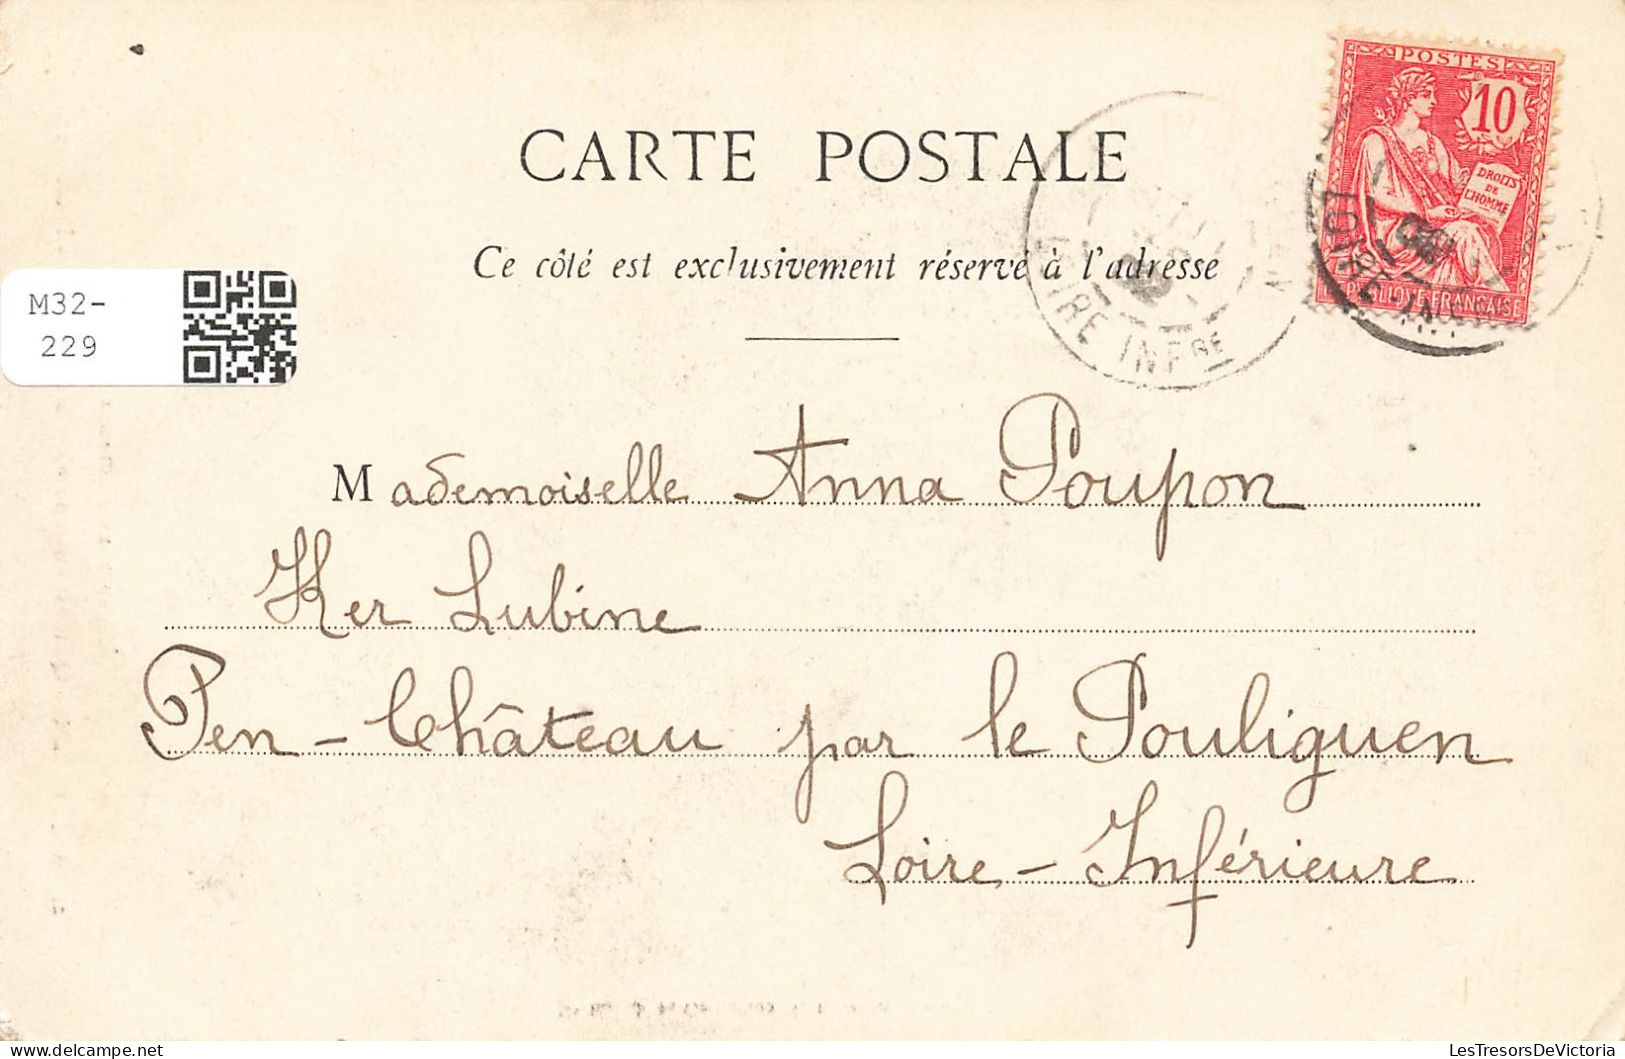 POSTES
10
DROITS
DE
L'HOMME
REPUBLIQUE FRANÇAISE
CARTE POSTALE
LOIRE INFRE
LOIRE-INF
Ce côté est exclusivement réservé à l'adresse
M32-
229
Mademoiselle Anna Poupon
Ker Lubine
Pen-Château par le Pouliguen
Loire-Inférieure
LesTresorsDeVictoria